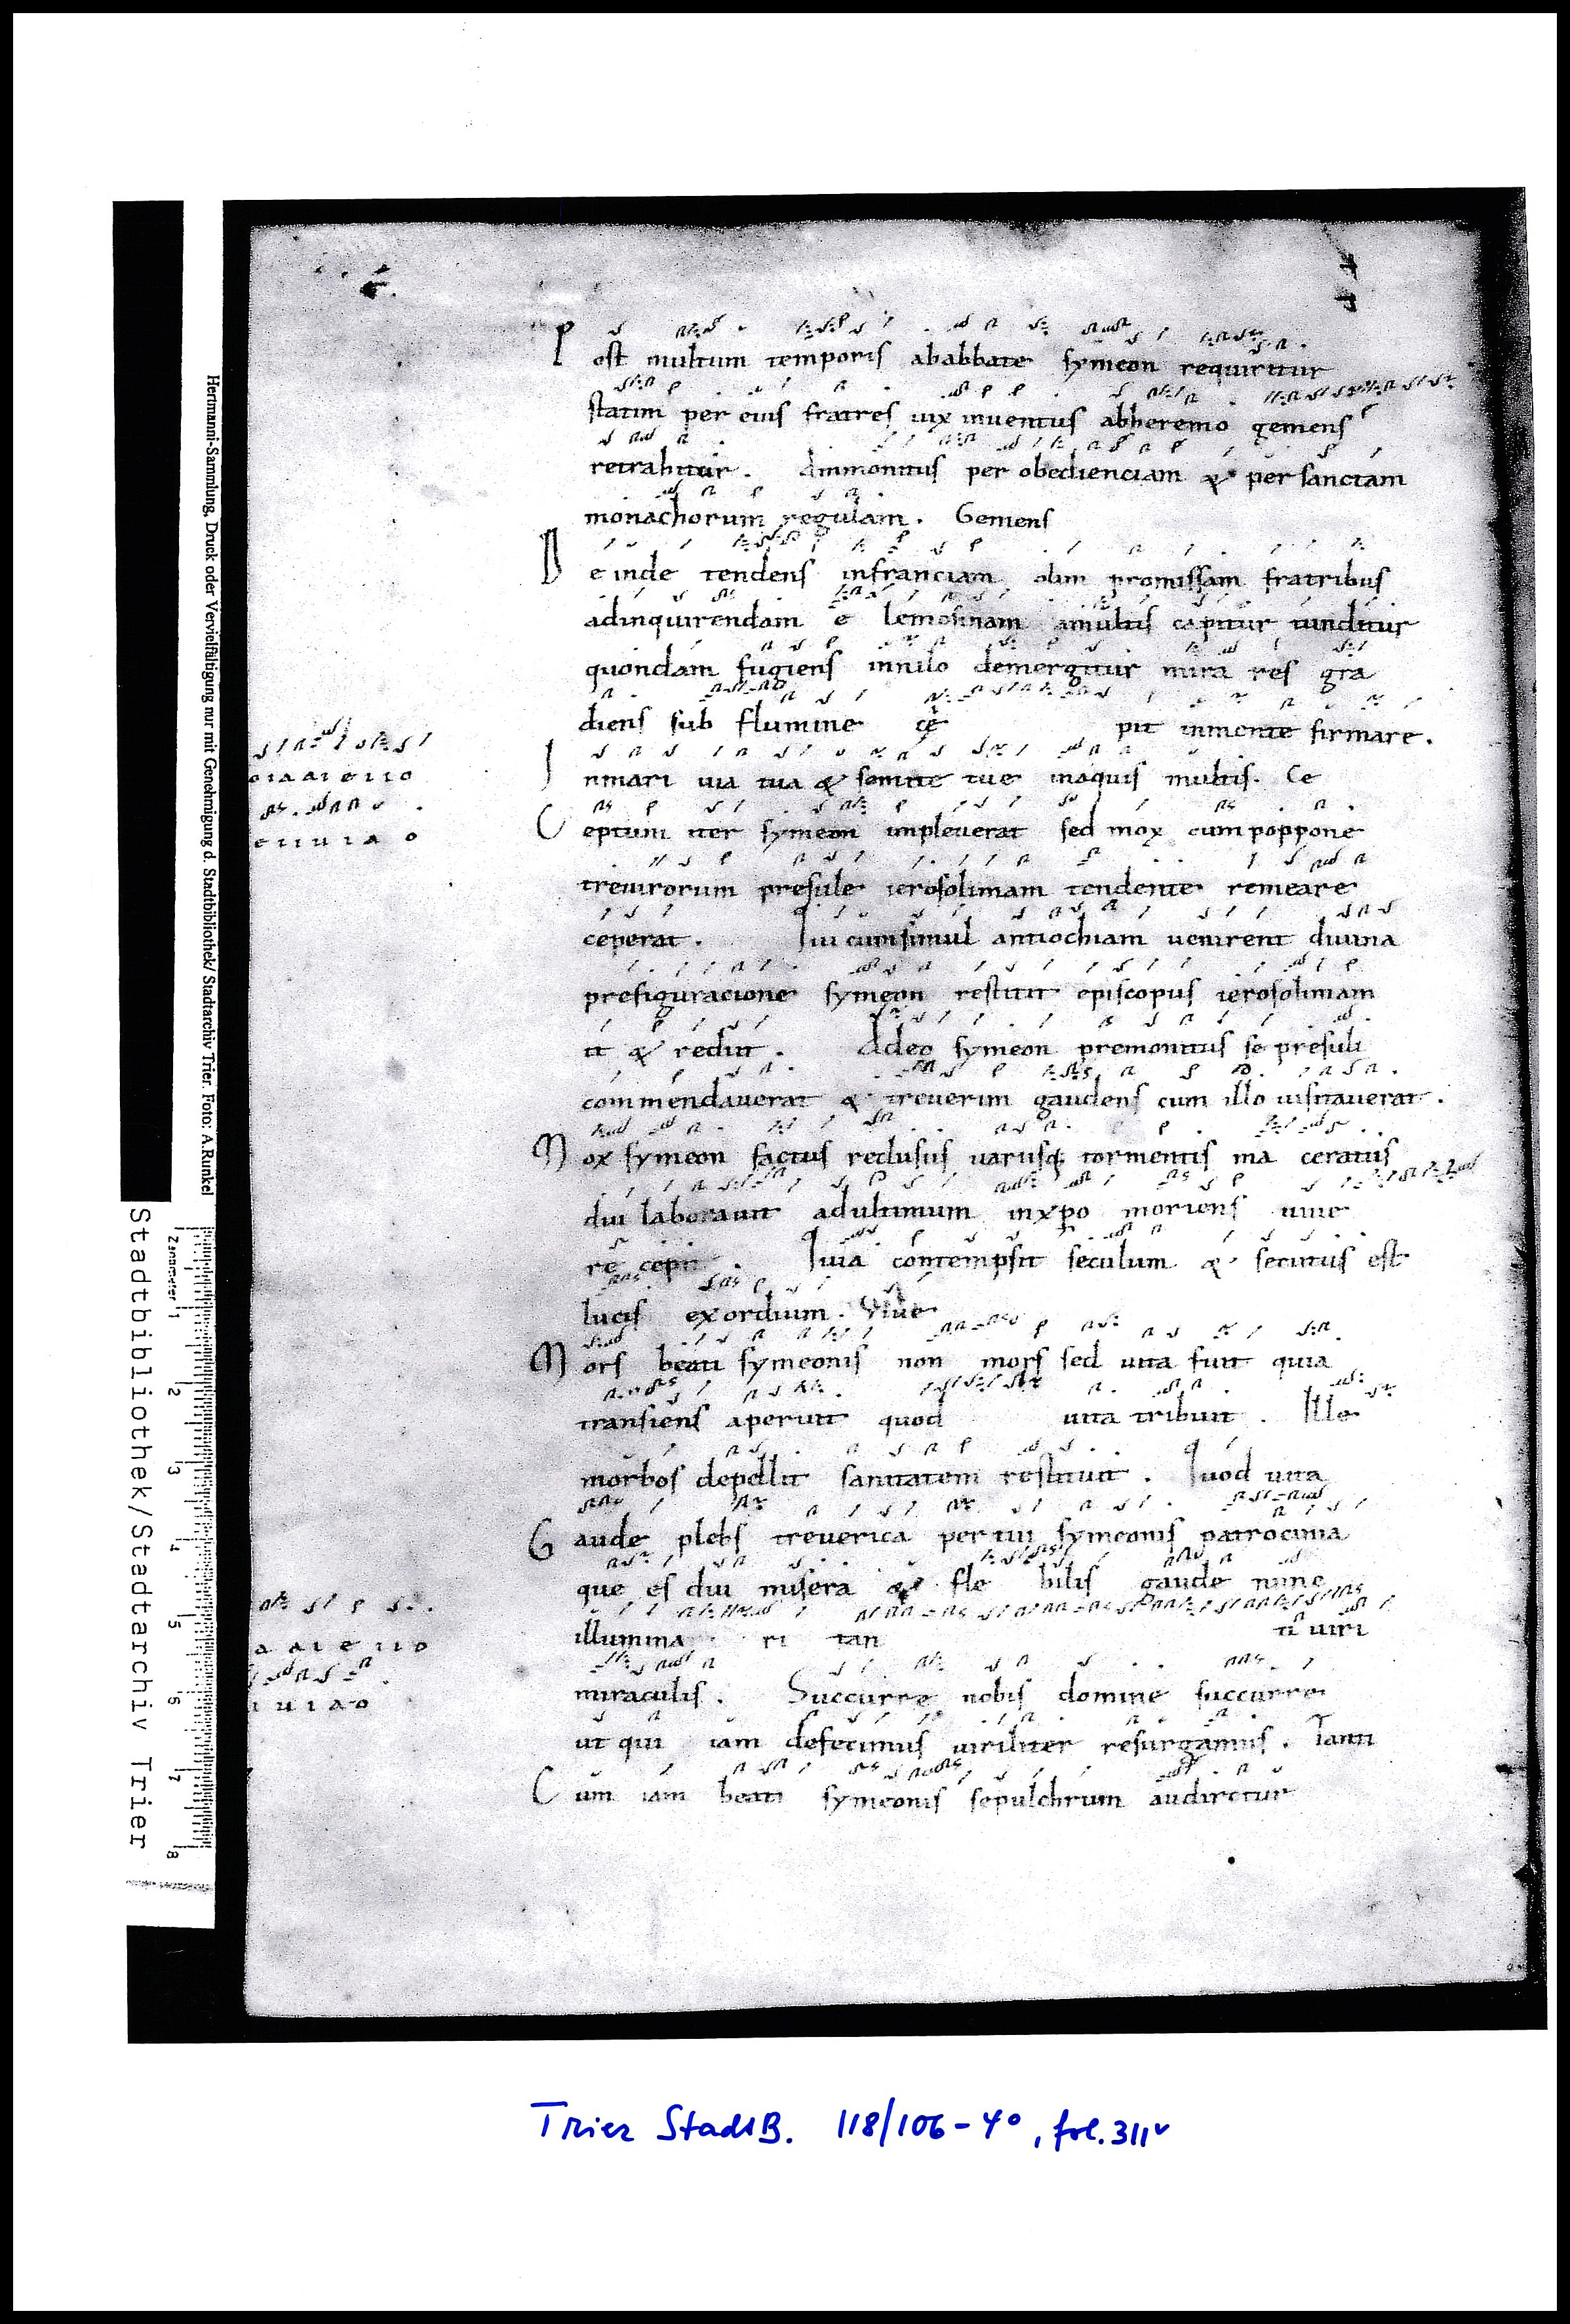 Post multum temporis ababbate symeon requiritur
statim per eius fratres uix inuentus abheremo gemens
retrahitur. Ammonitus per obedienciam & per sanctam
monachorum regulam. Gemens
Deinde tendens infranciam olim promissam fratribus
adinquirendam elemosinam amultis capitur tunditur
quondam fugiens innilo demergitur mira res gra
diens sub flumine ce pit inmente firmare.
Inmari uia tua & semite tue inaquis multis. Ce
oiaaieiio
Ceptum iter symeon impleuerat sed mox cum poppone
eiuiao
treuirorum presule ierosolimam tendente remeare
ceperat. Qui cumsimul antiochiam uenirent diuina
prefiguracione symeon restitit episcopus ierosolimam
it & rediit. Adeo symeon premonitus se presuli
commendauerat & treuerim gaudens cum illo uisitauerat.
Mox symeon factus reclusus uariisq; tormentis ma ceratus
diu laborauit adultimum inxpo moriens uiue
re cepit. Quia contempsit seculum & secutus est
lucis exordium. Viue
Mors beati symeonis non mors sed uita fuit quia
transiens aperuit quod uita tribuit. Ille
morbos depellit sanitatem restituit. Quod uita
Gaude plebs treuerica per tui symeonis patrocinia
que es diu misera & fle bilis gaude nunc
illumina ri tan ti uiri
a aieiio
miraculis. Succurre nobis domine succurre
iuiao
ut qui iam defecimus uiriliter resurgamus. Tanti
Cum iam beati symeonis sepulchrum audiretur
Hermanni-Sammlung, Druck oder Vervielfältigung nur mit Genehmigung d. Stadtbibliothek/ Stadtarchiv Trier. Foto: A.Runkel
Stadtbibliothek/Stadtarchiv Trier
Zentimeter 1 2 3 4 5 6 7 8
Trier StadtB. 118/106-4°, fol. 311v